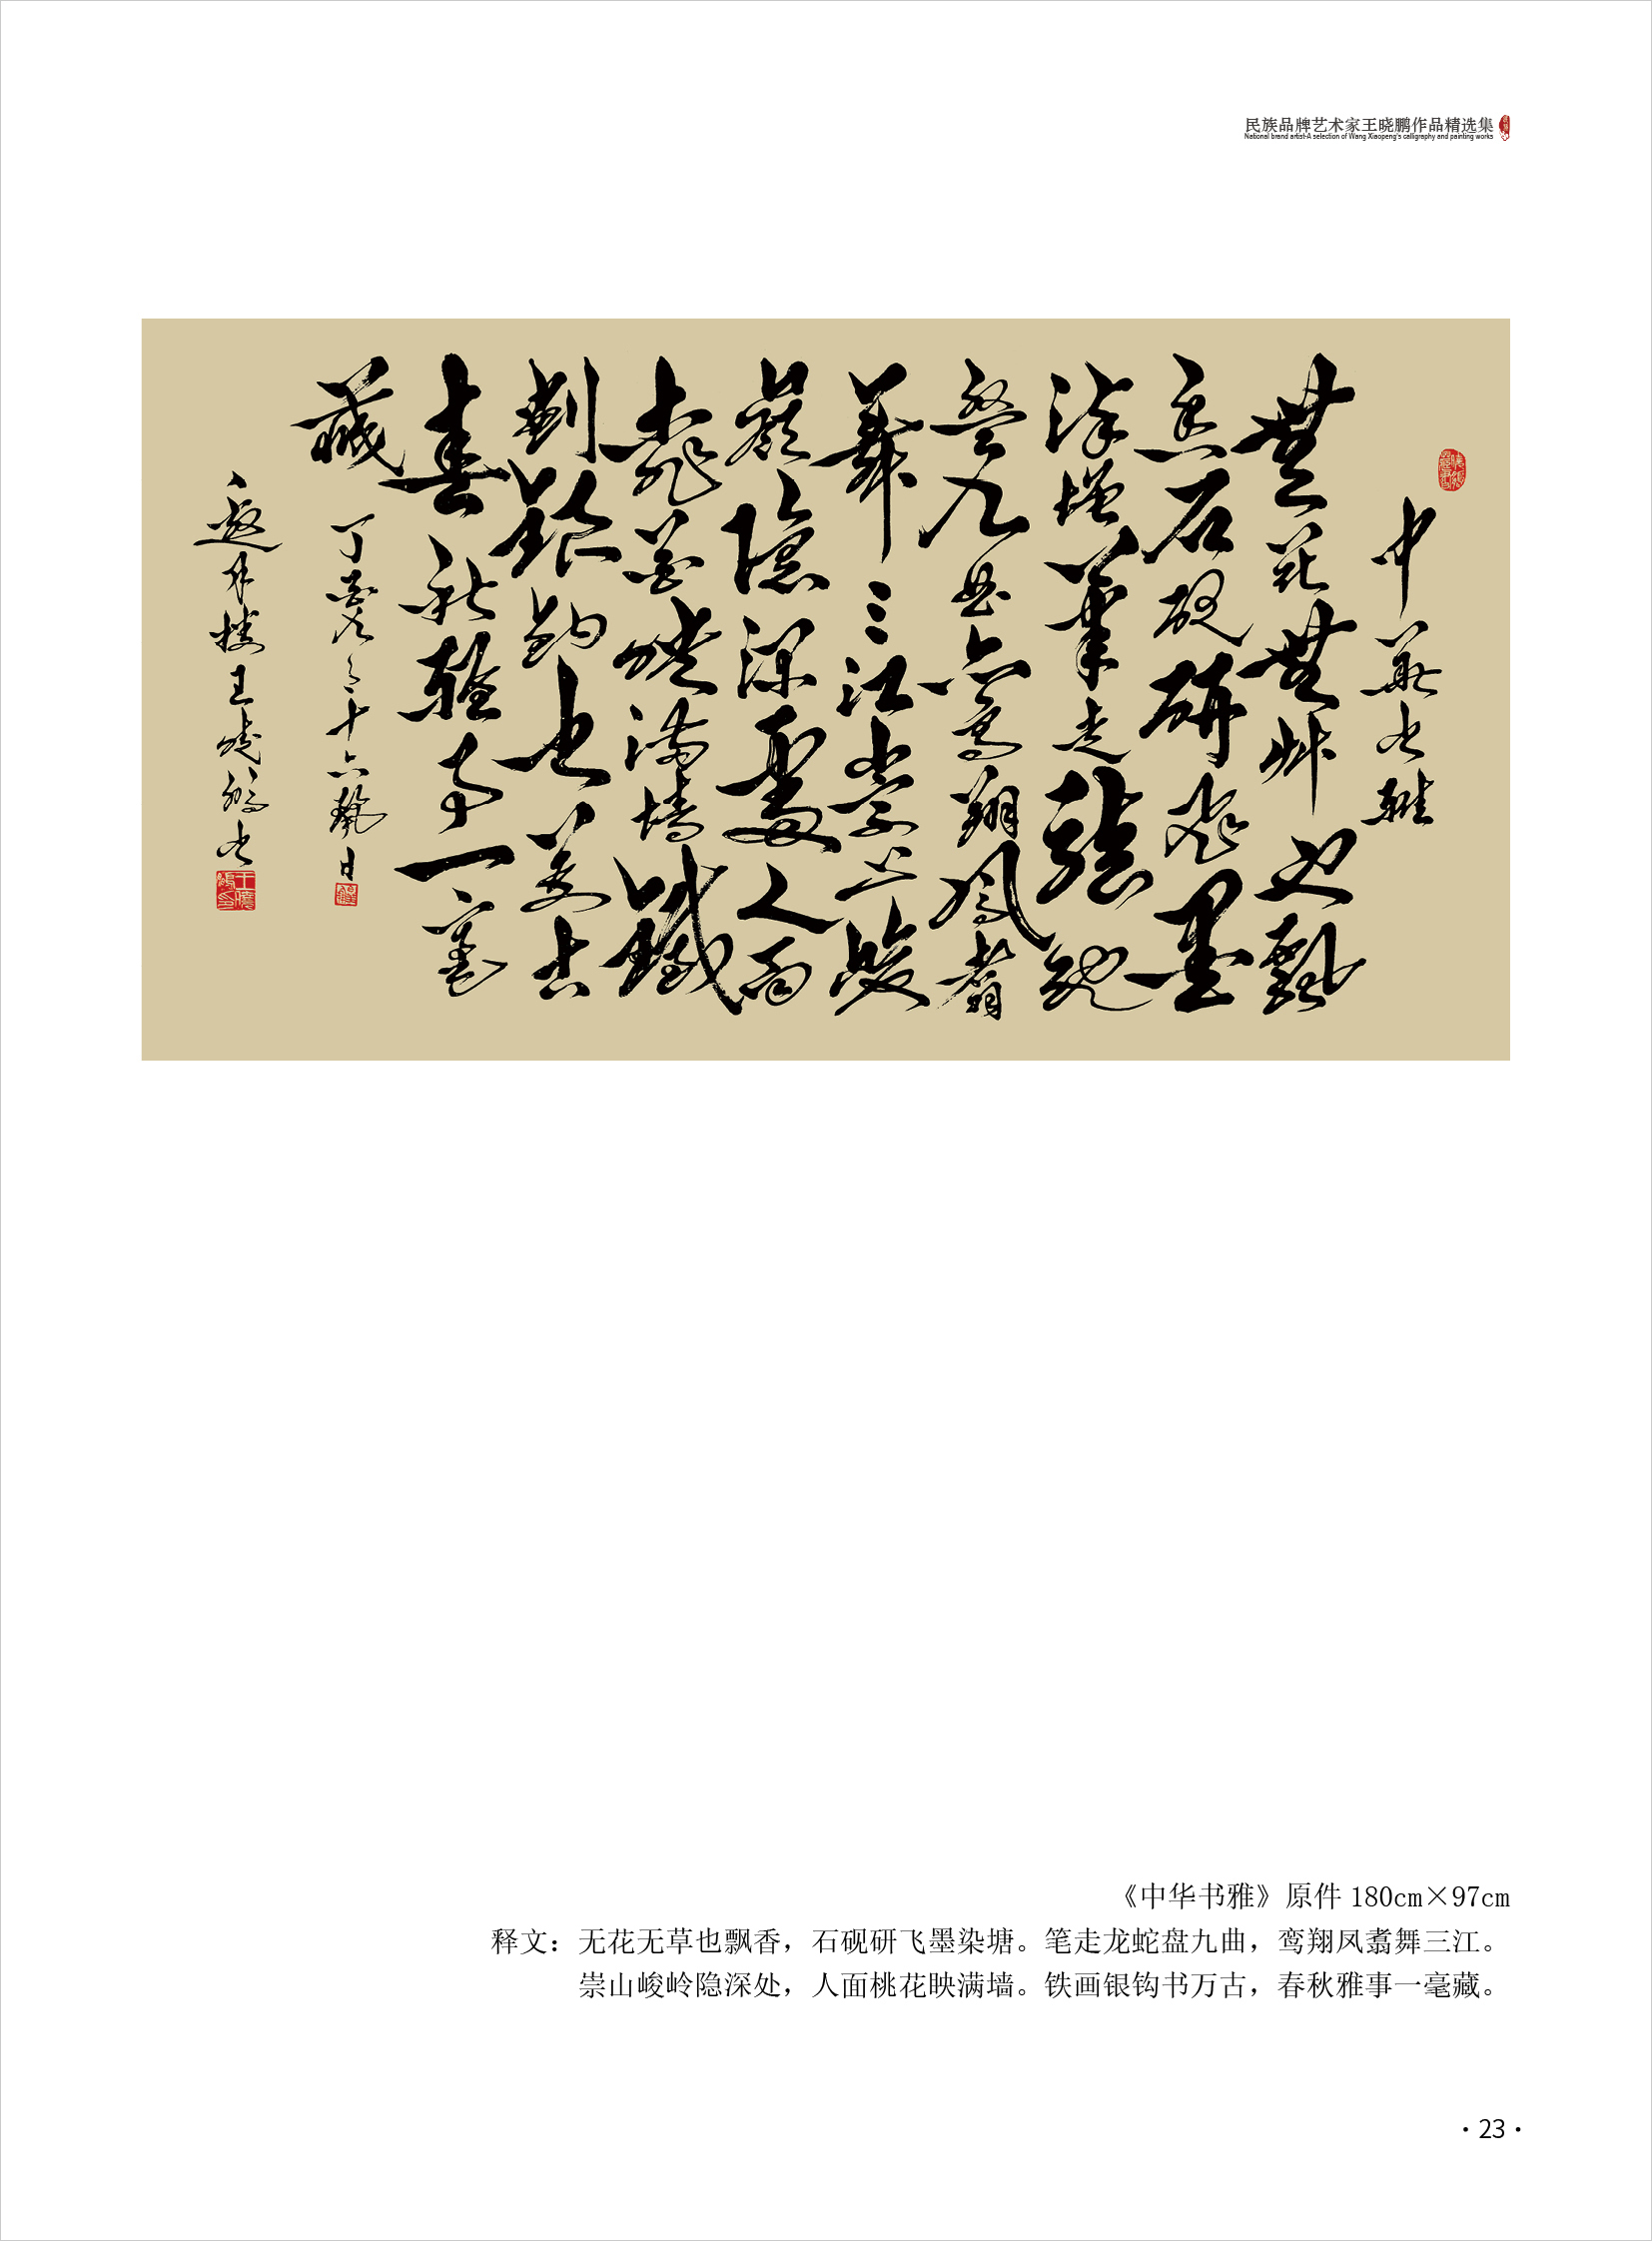 民族品牌艺术家王晓鹏作品精选集
National brand artist-A selection of Wang Xiaopeng's calligraphy and painting works
中華書雅
無花無草也飄
香石硯研飛墨
染塘筆走龍蛇
盤九曲鸞翔鳳翥
舞三江崇山峻
嶺隱深處人面
桃花映滿墻鐵
劃銀鉤書萬古
春秋雅事一毫
藏
邀月樓王曉鵬書
《中华书雅》原件 180cm×97cm
释文：无花无草也飘香，石砚研飞墨染塘。笔走龙蛇盘九曲，鸾翔凤翥舞三江。
崇山峻岭隐深处，人面桃花映满墙。铁画银钩书万古，春秋雅事一毫藏。
·23·